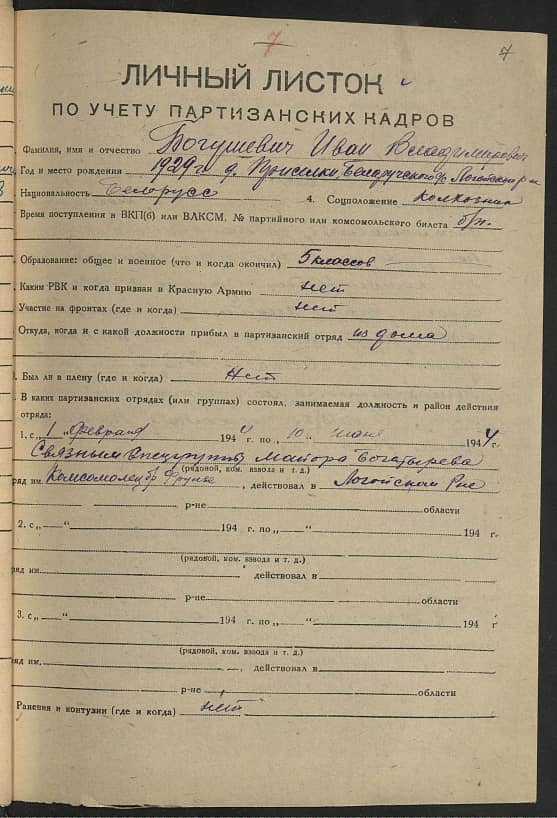 7
7
ЛИЧНЫЙ ЛИСТОК
ПО УЧЕТУ ПАРТИЗАНСКИХ КАДРОВ
Фамилия, имя и отчество Богушевич Иван Владимирович
Год и место рождения 1929 г. д. Присилки, Беларучского Логойского р-н
Национальность Белорусс 4. Соцположение колхозник
Время поступления в ВКП(б) или ВЛКСМ, № партийного или комсомольского билета б/п.
Образование: общее и военное (что и когда окончил) 5 классов
Каким РВК и когда призван в Красную Армию нет
Участие на фронтах (где и когда) нет
Откуда, когда и с какой должности прибыл в партизанский отряд из дома
Был ли в плену (где и когда) Нет
В каких партизанских отрядах (или группах) состоял, занимаемая должность и район действия
отряда:
1. с „1" февраля 1944 г. по „10" июня 1944 г.
Связным Спецгруппы Майора Богатырева
(рядовой, ком. взвода и т. д.)
ряд им. Комсомолец бр Фрунзе, действовал в Логойском р-не
р-не области
2. с „ " 194 г. по „ " 194 г.
(рядовой, ком. взвода и т. д.)
яд им. действовал в
р-не области
3. с „ " 194 г. по „ " 194 г
(рядовой, ком. взвода и т. д.)
яд им. , действовал в
р-не области
Ранения и контузии (где и когда) нет